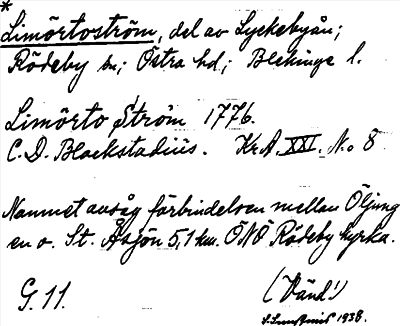 *
Limörtoström, del av Lyckebyån;
Rödeby sn; Östra hd; Blekinge l.
Limörto Ström 1776.
C. D. Blackstadius. Kr.A. XXI. No 8
Namnet avsåg förbindelsen mellan Öljung
en o. St. Åsjön 5,1 km. ÖNÖ Rödeby kyrka.
G. 11. (Vänd!)
1938.